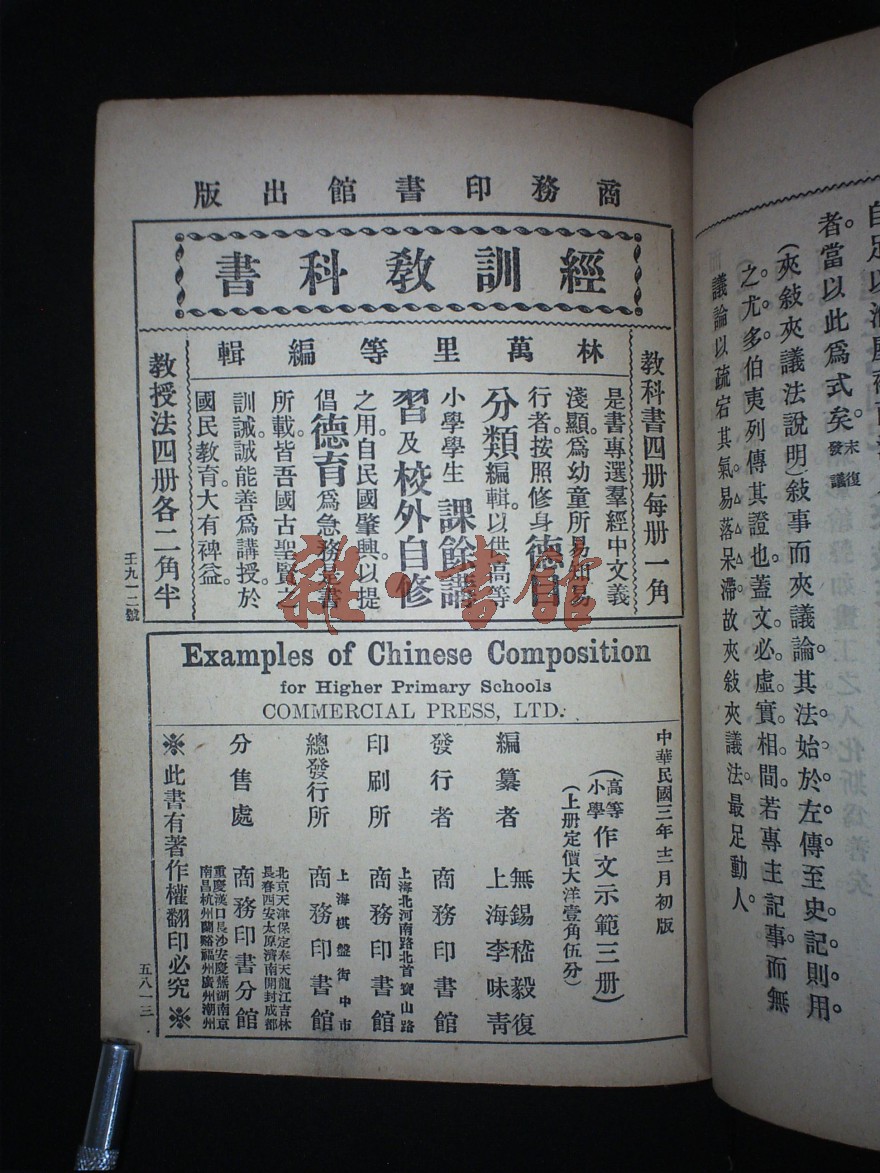 者。當以此爲式矣。末復發議
(夾敍夾議法說明)敍事而夾議論。其法始於左傳。至史記則用
之尤多。伯夷列傳其證也。蓋文必虛實相間。若專主記事而無
議論以疏宕其氣。易落呆滯。故夾敍夾議法。最足動人。
商務印書館出版
經訓教科書
林萬里等編輯
教科書四册每册一角
是書專選羣經中文義
淺顯。爲幼童所易知易
行者。按照修身德目
分類編輯。以供高等
小學學生課餘講
習及校外自修
之用。自民國肇興。以提
倡德育爲急務。是書
所載皆吾國古聖賢之
訓誡。誠能善爲講授。於
國民教育。大有裨益。
教授法四册各二角半
壬九一二號
Examples of Chinese Composition
for Higher Primary Schools
COMMERCIAL PRESS, LTD.
中華民國三年十二月初版
(高等小學作文示範三册)
(上册定價大洋壹角伍分)
編纂者 無錫嵇毅復
上海李味青
發行者 商務印書館
印刷所 上海北河南路北首寶山路
商務印書館
總發行所 上海棋盤街中市
商務印書館
分售處 北京天津保定奉天龍江吉林
長春西安太原濟南開封成都
商務印書分館
重慶漢口長沙安慶蕪湖南京
南昌杭州蘭谿福州廣州潮州
※此書有著作權翻印必究※
五八一三
雜·書館